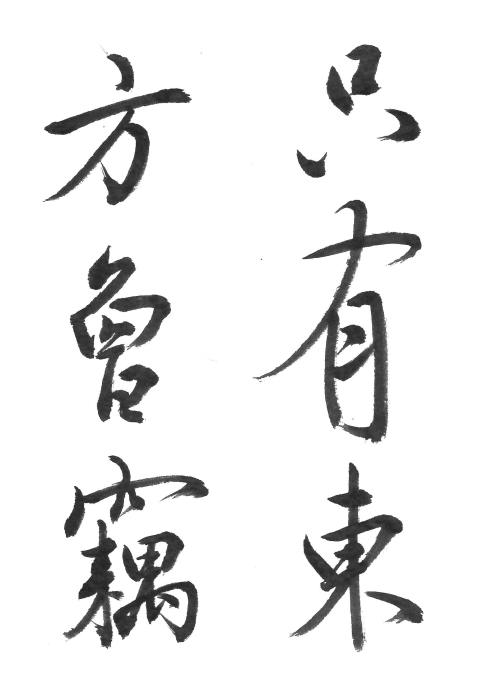 只有東
方曾竊